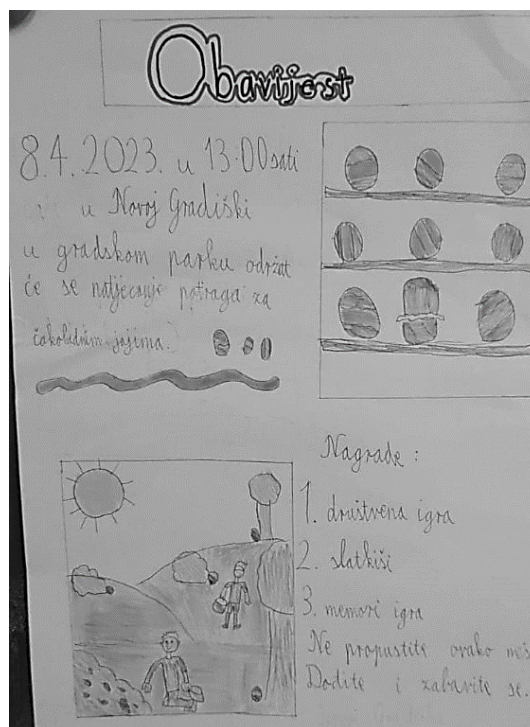 Obavijest
8.4.2023. u 13:00 sati
u Novoj Gradiški
u gradskom parku održat
će se natjecanje potraga za
čokoladnim jajima.
Nagrade :
1. društvena igra
2. slatkiši
3. memori igra
Ne propustite ovako
Dođite i zabavite se.